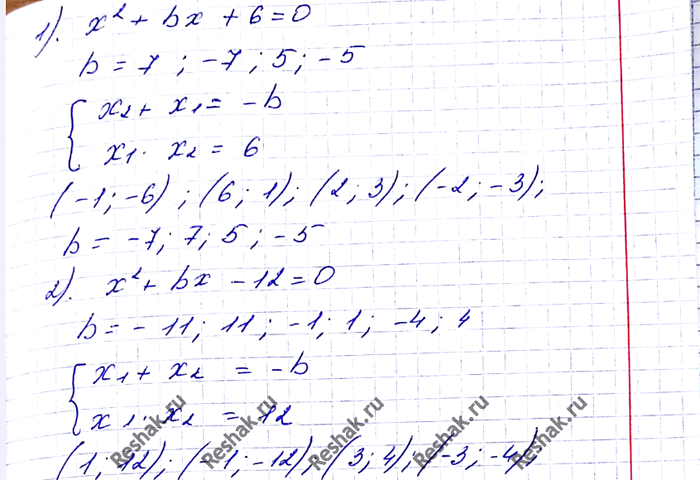 1). x² + bx + 6 = 0
b = 7 ; -7 ; 5 ; -5
{ x₂ + x₁ = -b
x₁ · x₂ = 6
(-1 ; -6) ; (6 ; 1) ; (2 ; 3) ; (-2 ; -3) ;
b = -7 ; 7 ; 5 ; -5
2). x² + bx - 12 = 0
b = -11 ; 11 ; -1 ; 1 ; -4 ; 4
{ x₁ + x₂ = -b
x₁ · x₂ = 12
(1 ; 12) ; (-1 ; -12) ; (3 ; 4) ; (-3 ; -4) ;
Reshak.ru
Reshak.ru
Reshak.ru
Reshak.ru
Reshak.ru